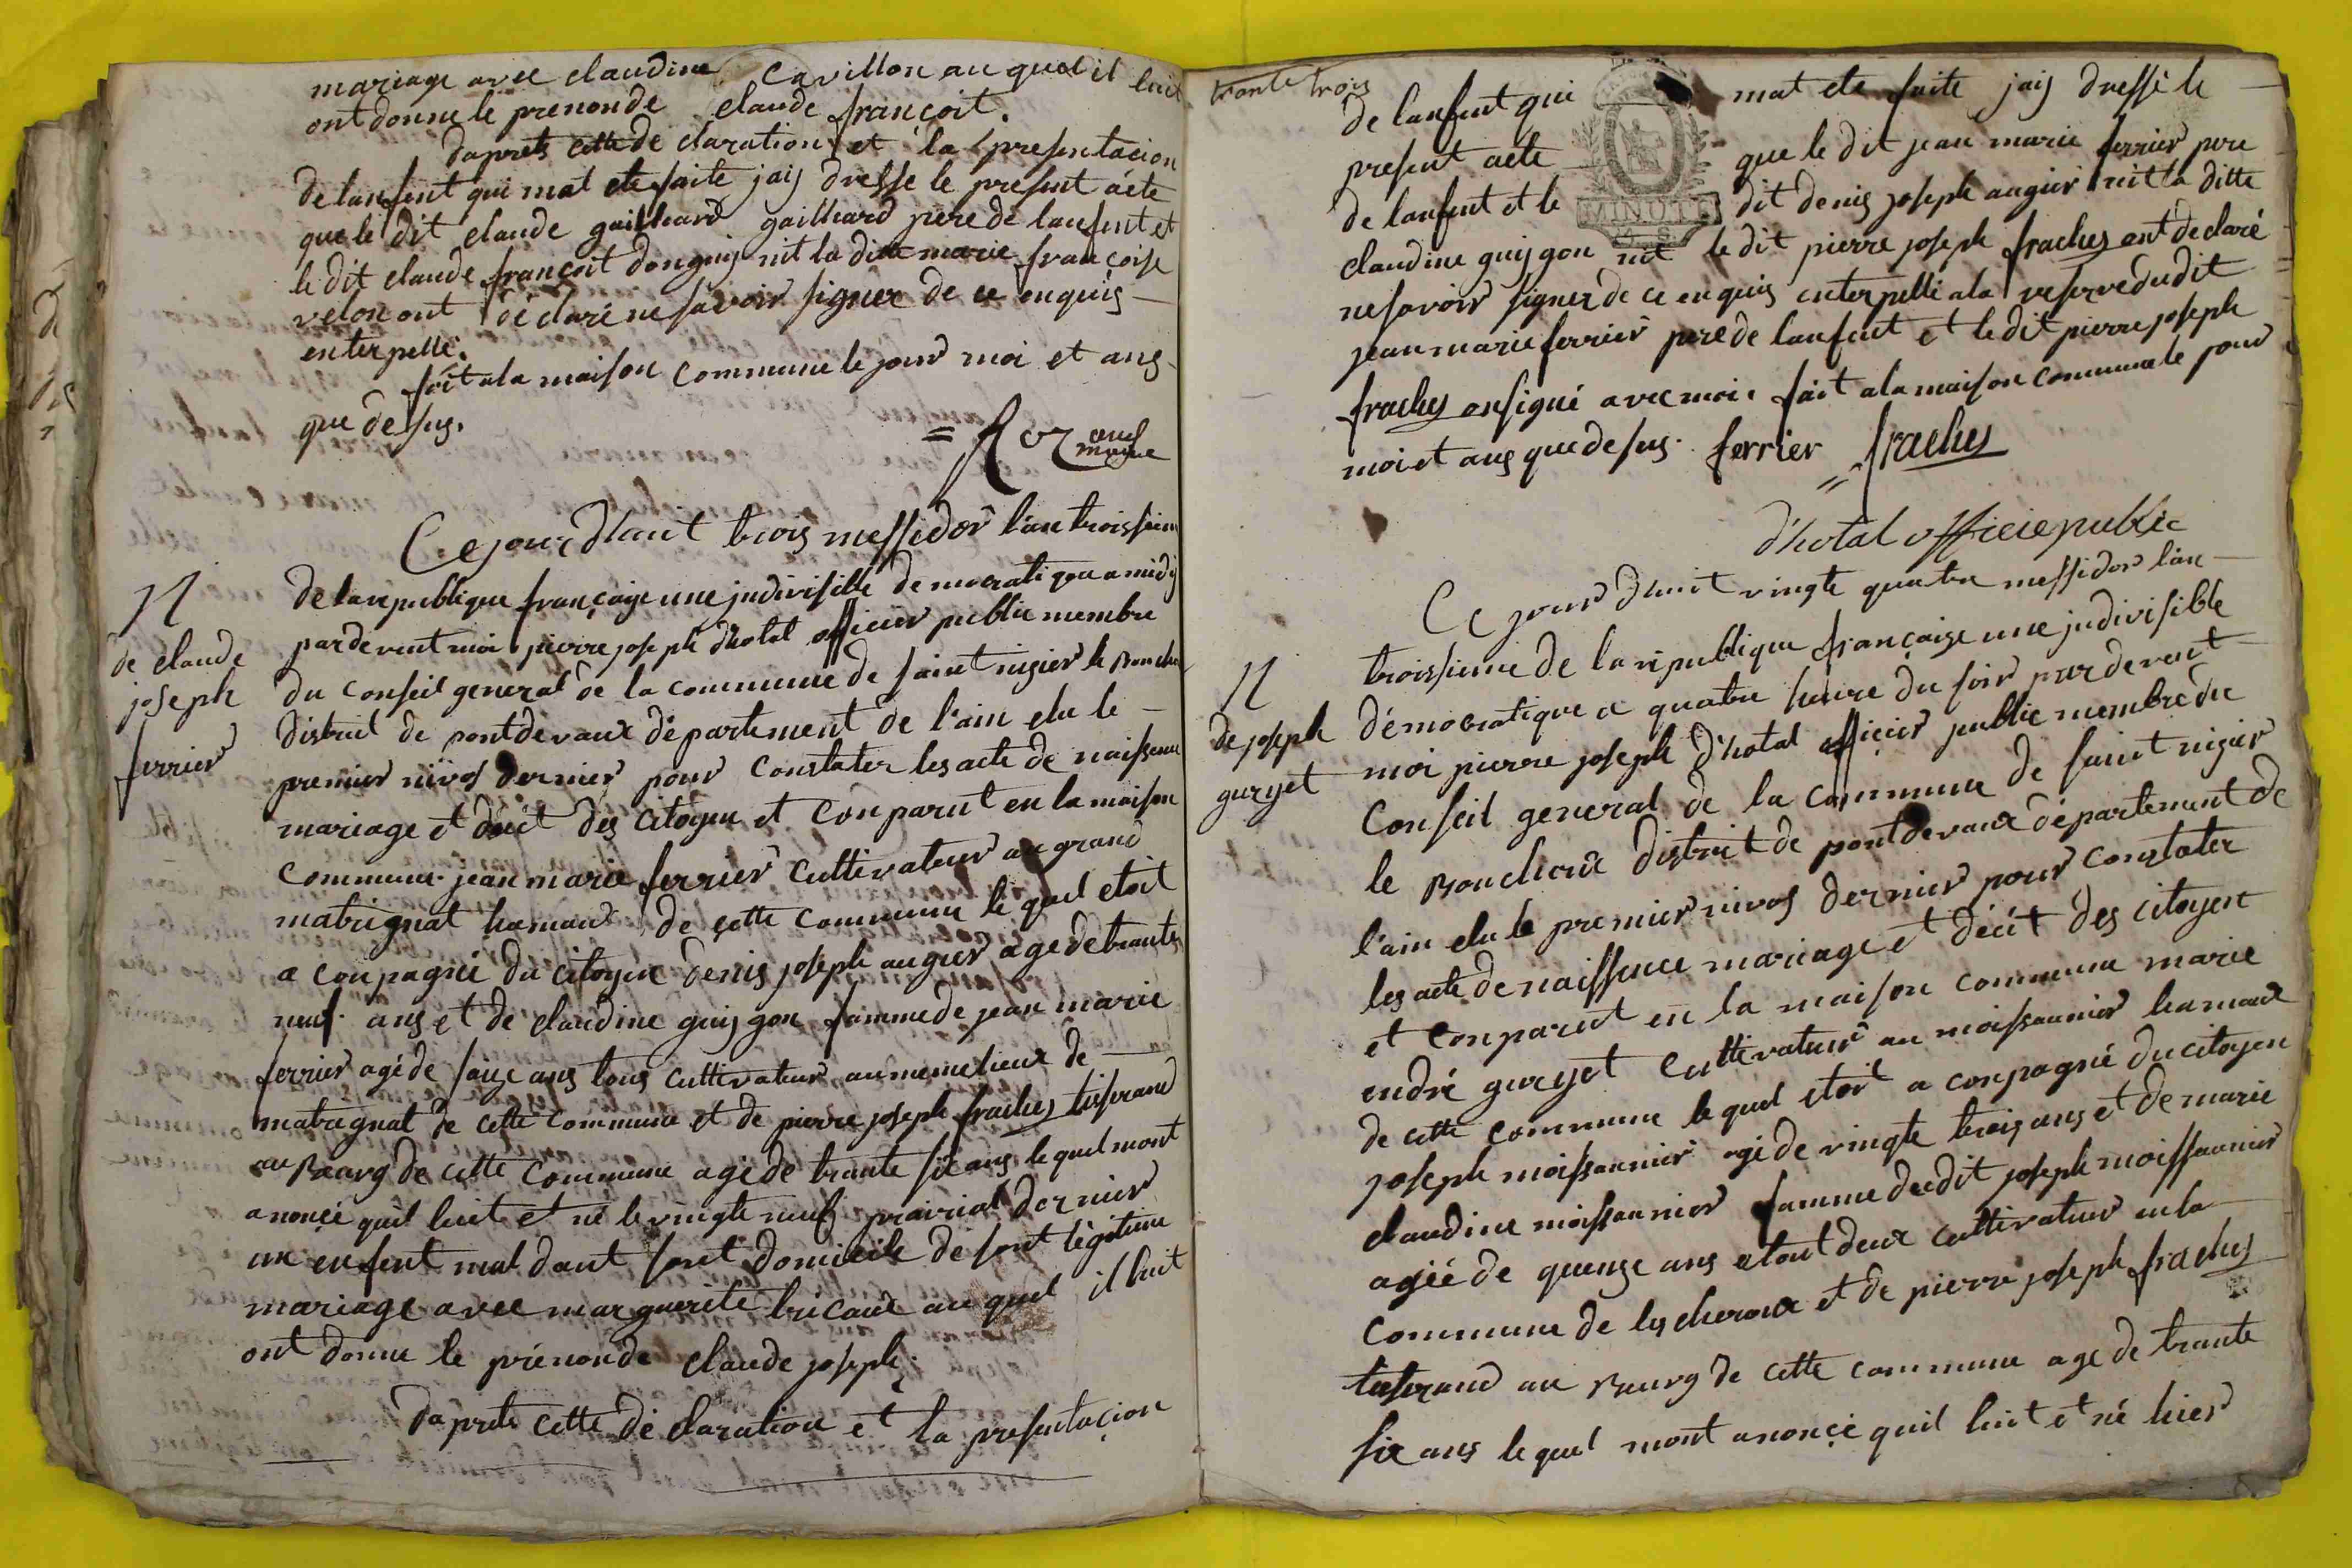 mariage avec claudine Cavillon au quel il luit
ont donne le prenonde claude françoit.
daprets cette de claration et la presentacion
de lanfent qui mat ete faite jaij dresse le present acte
que le dit claude gailliard gailliard pere de lanfent et
le dit claude françoit donguij nit la ditte marie françoise
velon ont déclaré ne savoir signer de ce enquis
enterpellé.
fait ala maison commune le jour moi et ans
que desus.
Ce jourdhuit trois messidor l'an troissieme
N
de claude
joseph
ferrier
de la republique françaige une jndivisible democratique a midij
pardevent moi pierre joseph dhotal officier public membre
du Conseil general de la commune de saint nizier le Bouchou
distrait de pontdevaux département de l'ain elu le
premier nivos dernier pour Constater les acte de naissence
mariage et décit des citoyen et Conparut en la maison
commune jean marie ferrier Cultivateur au grand
matrignat hamaux de cette commune le quel etoit
a conpagnié du citoyen denis joseph augier age de trante
neuf ans et de claudine guijgon famme de jean marie
ferrier agé de saize ans tous cultivateur au meme lieux de
matrignat de cette commune et de pierre joseph fraches tisserand
au Bourg de cette commune agé de trante six ans le quel mont
anoncé quil luit et né le vingte neuf prairial dernier
un enfent mal dant sont domicile de sont légitime
mariage avec marguerite bricaud au quel il luit
ont donne le prénonde claude joseph.
daprets cette déclaration et la presentaçion
trante trois
de lanfent qui mat ete faite jaij dressé le
present acte que le dit jean marie ferrier pere
de lanfent et le dit denis joseph augier nit la ditte
MINUTE
claudine guijgon nit le dit pierre joseph fraches ont declaré
ne savoir signer de ce enquis enterpellé ala reserve dudit
jean marie ferrier pere de lanfent et le dit pierre joseph
fraches onsigné avec moi. fait ala maison commune le jour
moi et ans que desus. ferrier fraches
d'hotal officie public
Ce jour d'huit vingte quatre messidor l'an
N
de joseph
guryet
troissieme de la république française une jndivisible
démocratique a quatre heure du soir pardevent
moi pierre joseph d'hotal officier public membre du
Conseil general de la commune de saint nizier
le Bouchoux distrait de pontdevaux département de
l'ain elu le premier nivos dernier pour constater
les acte de naissence mariage et décit des citoyen
et Conparut en la maison commune marie
endré guryet Cultivateur au moissonnier hamaux
de cette commune le quel etoit a conpagnié du citoyen
joseph moissonnier agé de vingte trois ans et de marie
claudine moissonnier famme dudit joseph moissonnier
agiée de quenze ans etout deux cultivateur en la
commune de lescheroux et de pierre joseph fraches
tisserand au Bourg de cette commune age de trante
six ans le quel mont anonçé quil luit et né hier